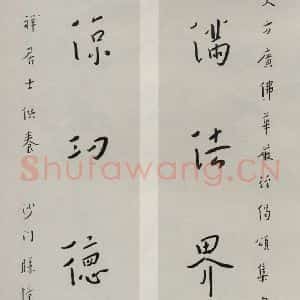 大方廣佛華嚴經偈頌集
滿法界
涼功德
祥居士供養 沙門
Shufawang.CN